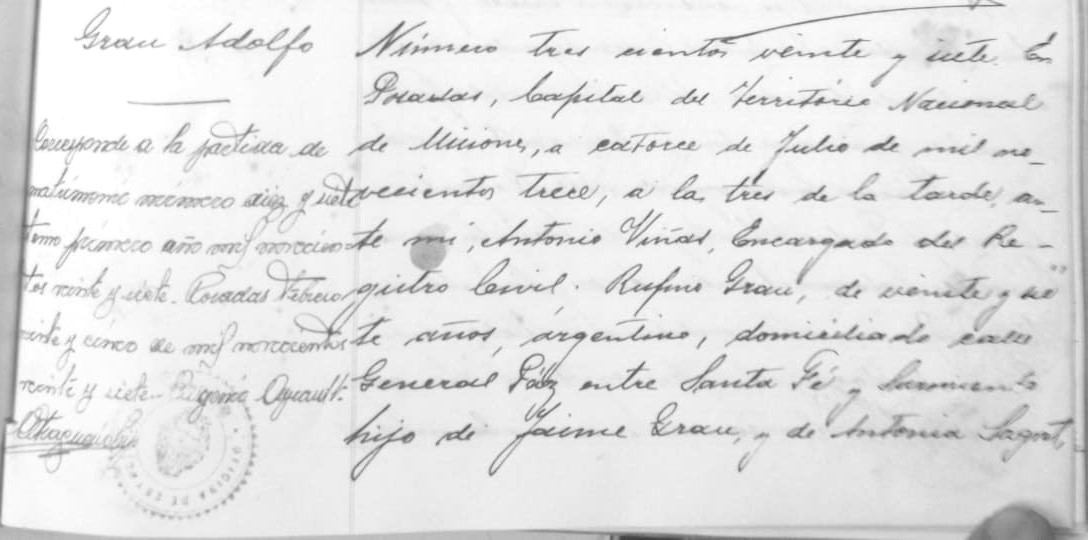 Grau Adolfo
Corresponde a la partida de
matrimonio número diez y siete
tomo primero año mil novecien-
tos veinte y siete. Posadas Febrero
veinte y cinco de mil novecientos
veinte y siete.
Número tres cientos veinte y siete. En
Posadas, Capital del Territorio Nacional
de Misiones, a catorce de Julio de mil no-
vecientos trece, a las tres de la tarde, an-
te mi, Antonio Viñas, Encargado del Re-
gistro Civil. Rufino Grau, de veinte y sie
te años, argentino, domiciliado calle
General Páz entre Santa Fé y Sarmiento
hijo de Jaime Grau, y de Antonia